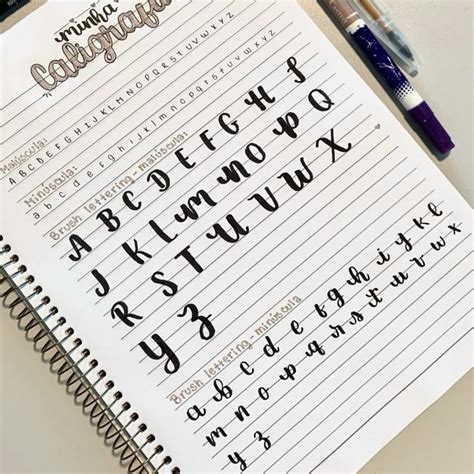 minha
Caligrafia
Maiúscula:
A B C D E F G H I J K L M N O P Q R S T U V W X Y Z
Minúscula:
a b c d e f g h i j k l m n o p q r s t u v w x y z
Brush lettering - maiúscula:
A B C D E F G H I
J K L M N O P Q
R S T U V W X
Y Z
Brush lettering - minúscula
a b c d e f g h i j k l
m n o p q r s t u v w x
y z